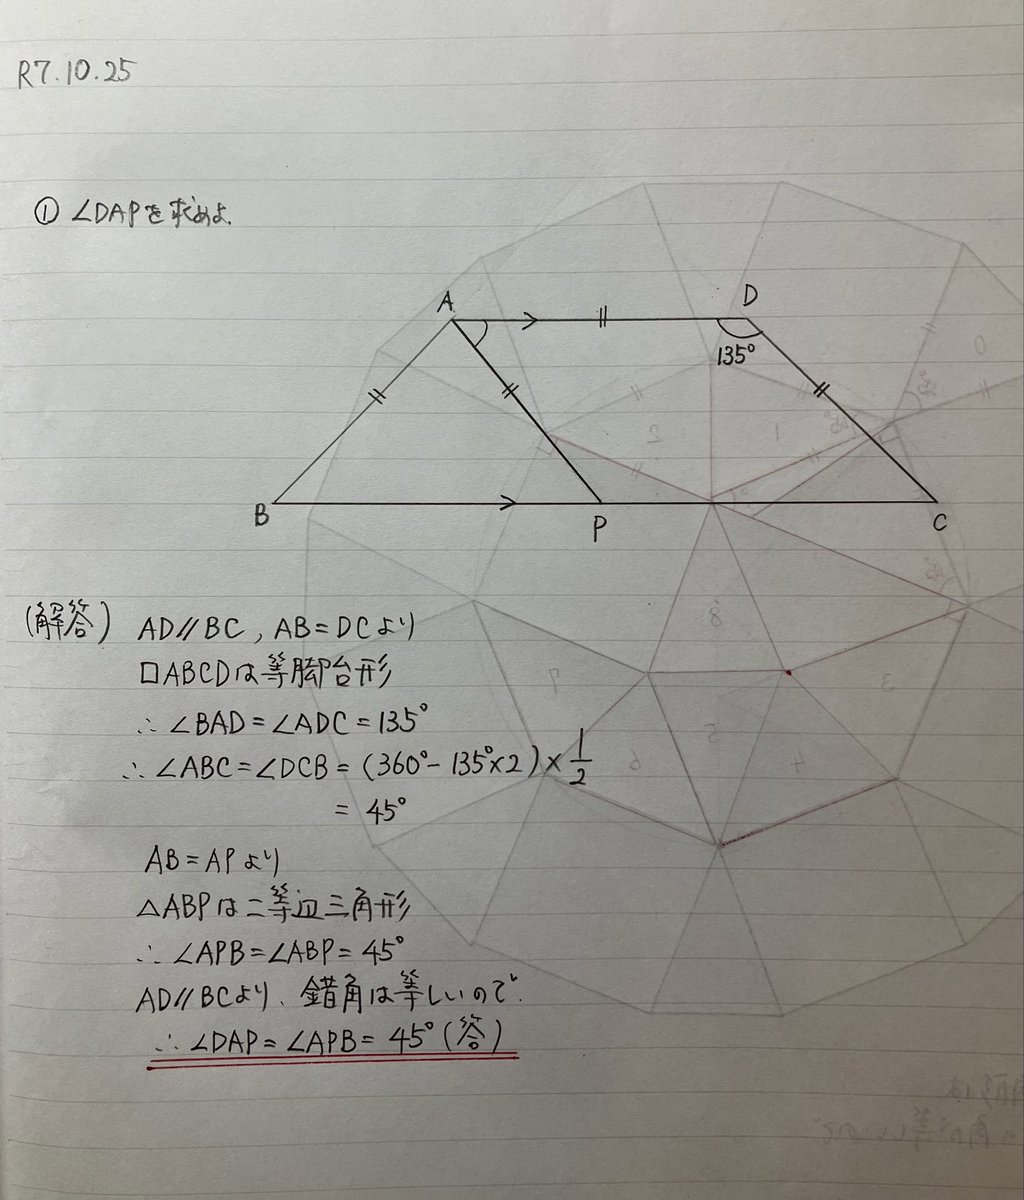 R7.10.25
① ∠DAPを求めよ.
A
D
135°
B
P
C
(解答) AD∥BC, AB=DCより
□ABCDは等脚台形
∴ ∠BAD=∠ADC=135°
∴ ∠ABC=∠DCB=(360°-135°×2)×1/2
= 45°
AB=APより
△ABPは二等辺三角形
∴ ∠APB=∠ABP=45°
AD∥BCより、錯角は等しいので.
∴ ∠DAP=∠APB=45°(答)